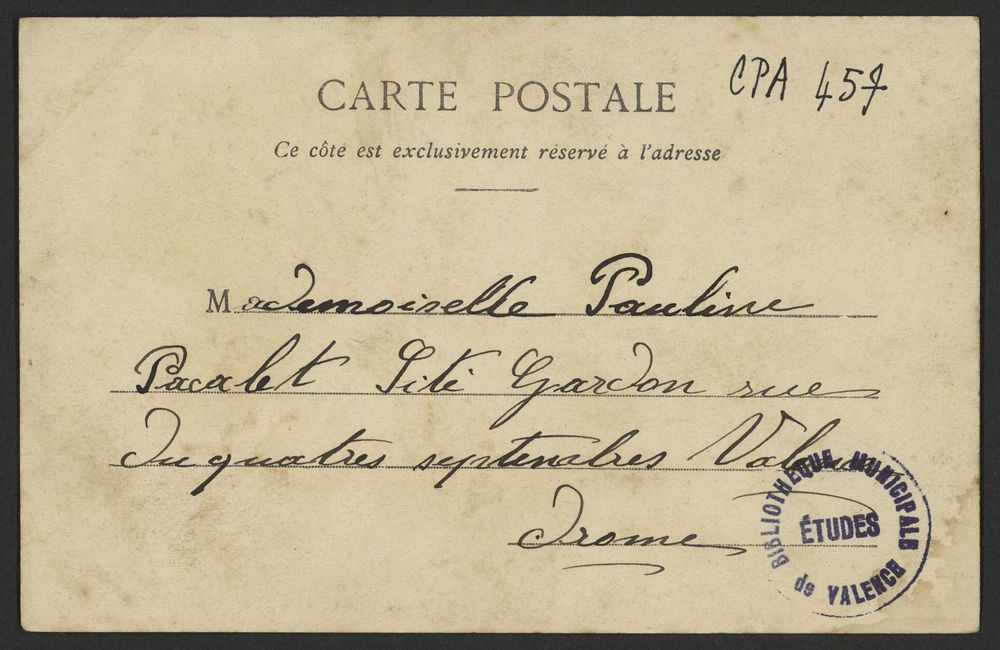 CARTE POSTALE
CPA 457
Ce côté est exclusivement réservé à l'adresse
Mademoiselle Pauline
Pacalet Sité Gardon rue
Du quatres septenabres Valence
Drome
BIBLIOTHEQUE MUNICIPALE
ÉTUDES
de VALENCE